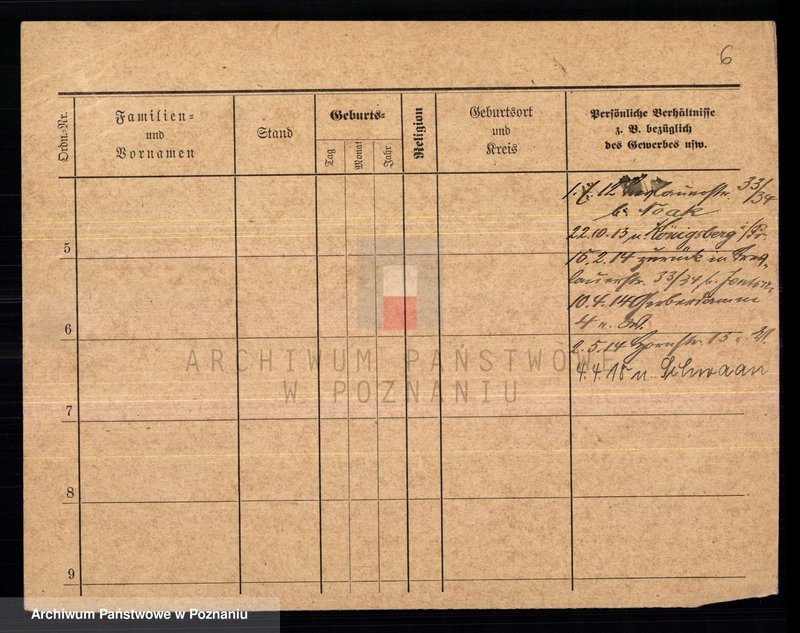 6
Ordn.-Nr.
Familien-
und
Vornamen
Stand
Geburts-
Tag
Monat
Jahr
Religion
Geburtsort
und
Kreis
Persönliche Verhältnisse
z. B. bezüglich
des Gewerbes usw.
1.7.12 33/34
b. Noak
22.10.13 n. Königsberg i/Pr.
5
15.2.14 zurück in Bres-
lauerstr. 33/34 b.
10.4.14 Gerberdamm
4
6
2.5.14 15
4.4.15 n. Schwaan
7
8
9
ARCHIWUM PAŃSTWOWE
W POZNANIU
Archiwum Państwowe w Poznaniu